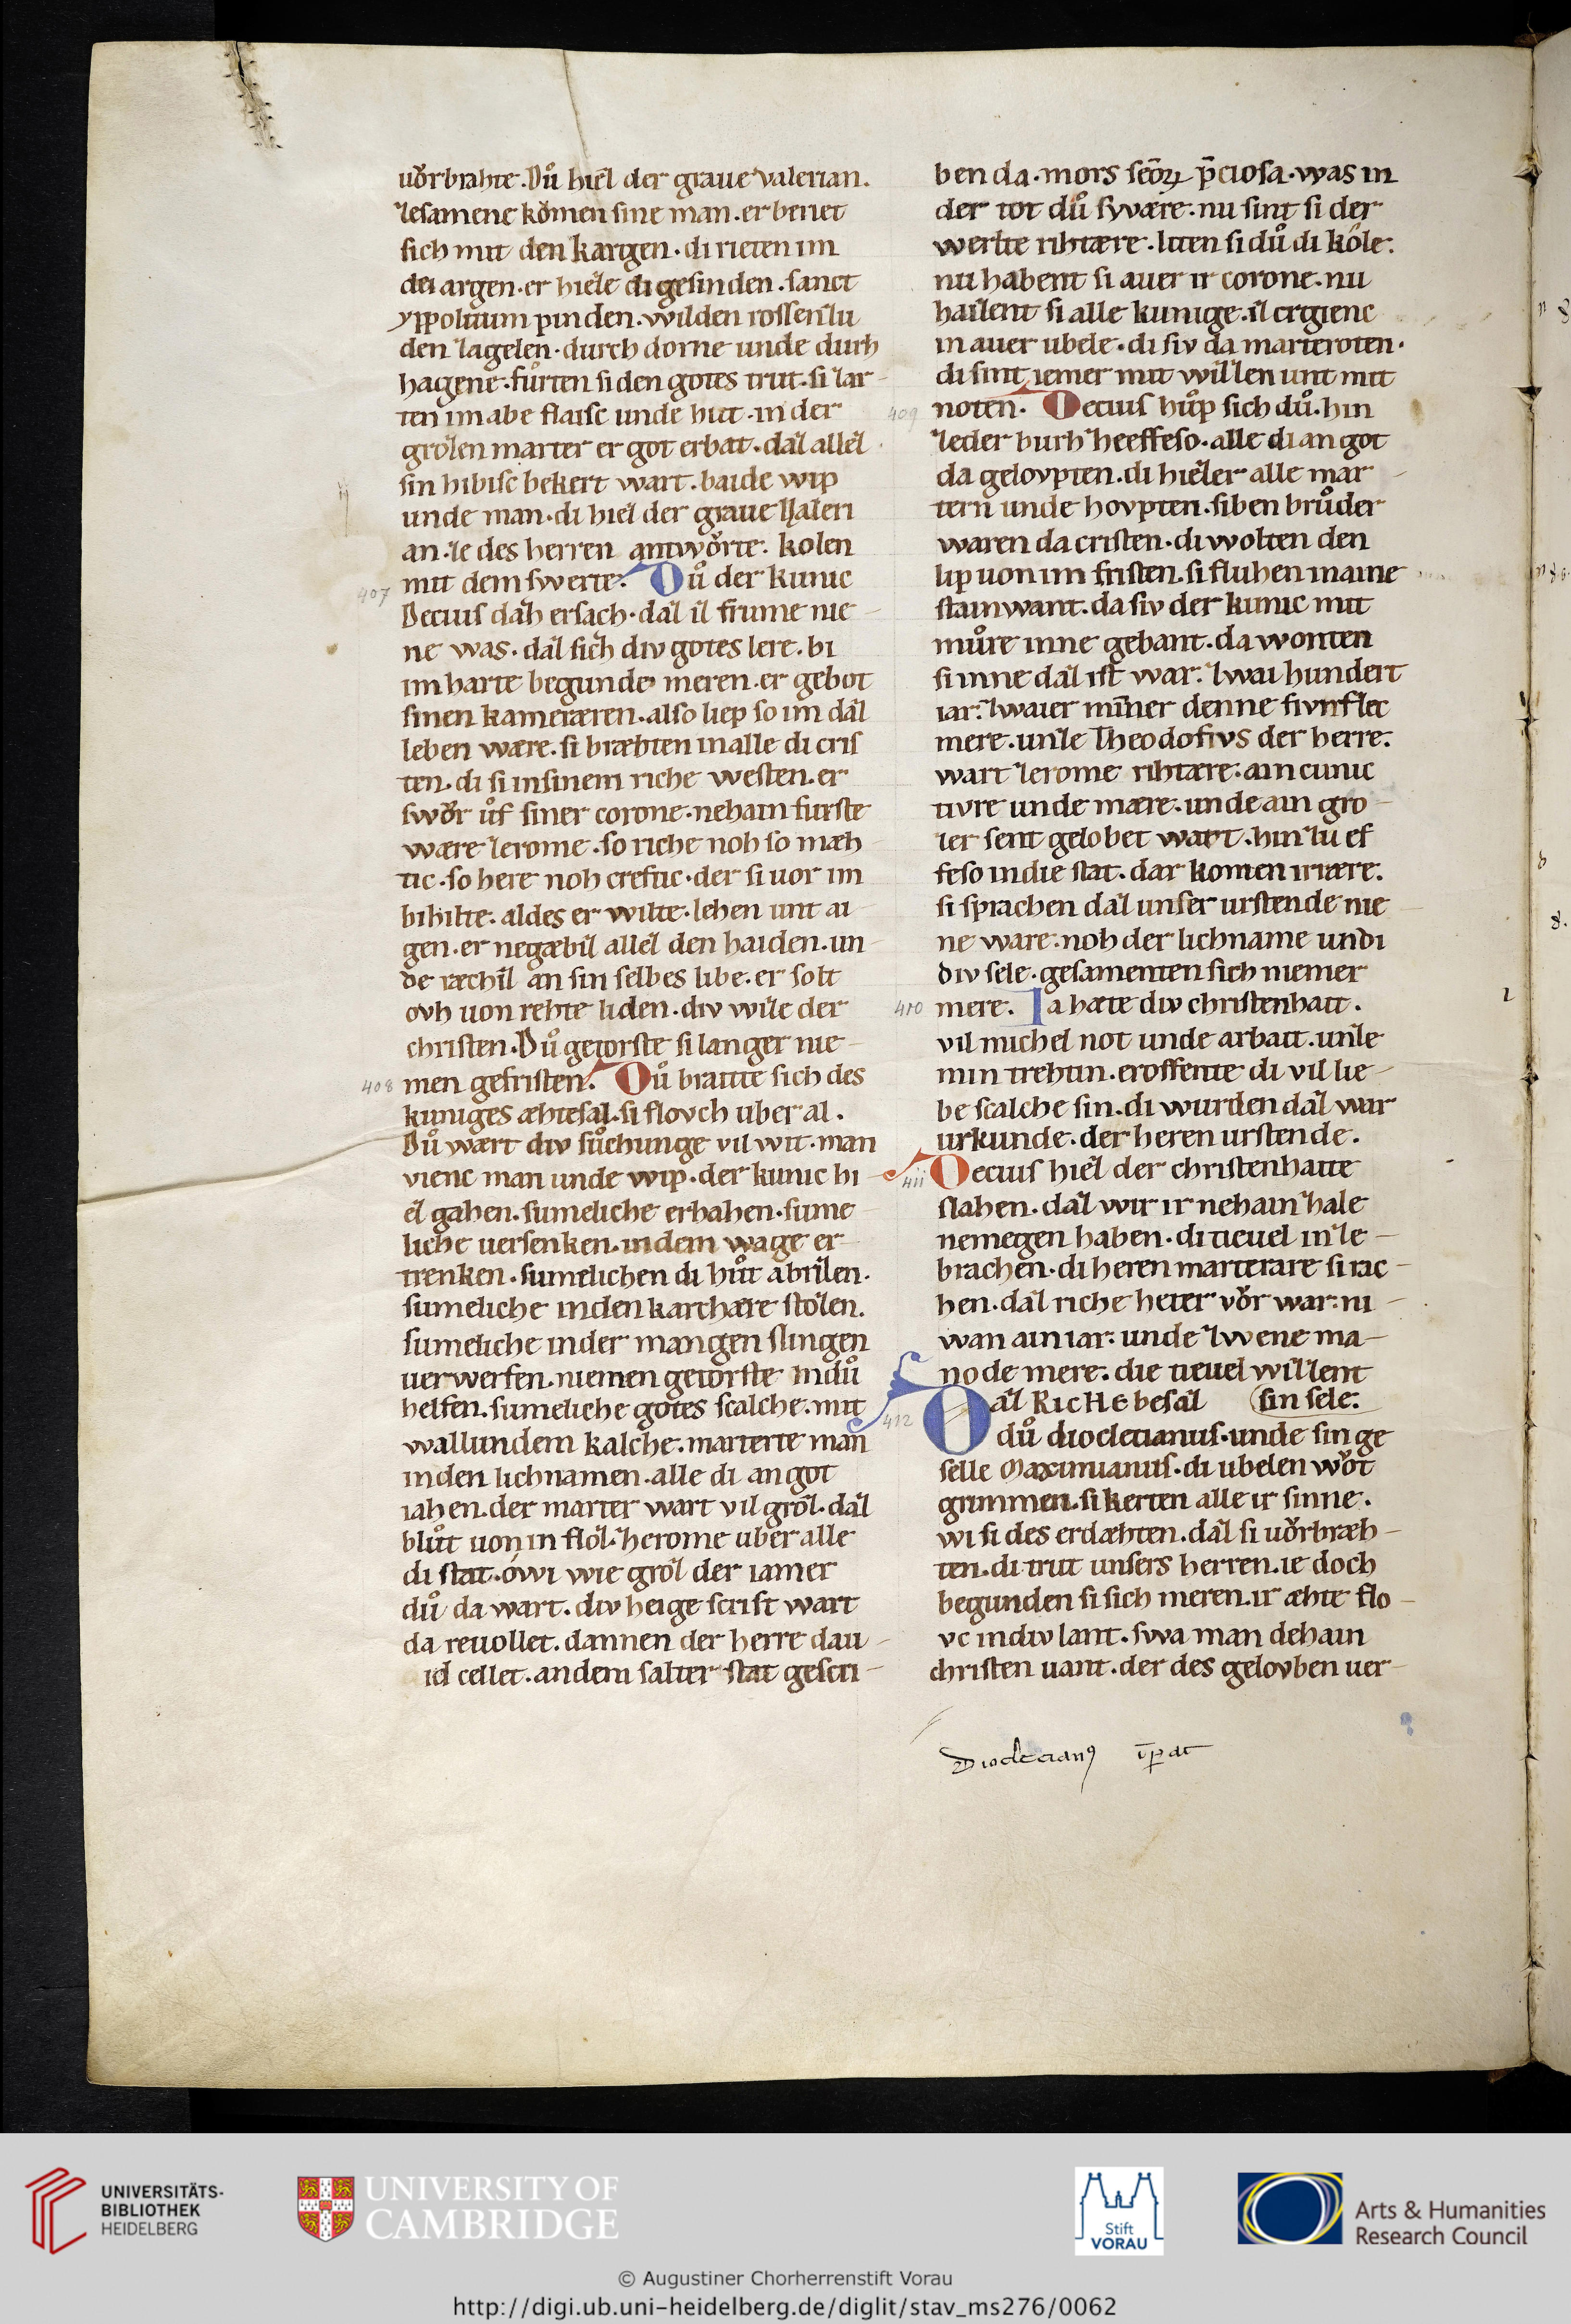 uŏrbrahte. Dů hiez der graue valerian.
zesamene kŏmen sine man. er beriet
sich mit den kargen. di rieten im
dei argen. er hieze di gesinden. sanct
yppolitum pinden. wilden rossen zu
den zagelen. durch dorne unde durh
hagene. fůrten si den gotes trut. si zar-
ten im abe flaisc unde hut. in der
grozen marter er got erbat. daz allez
sin hibisc bekert wart. baide wip
unde man. di hiez der graue Valeri
an. ze des herren antwŏrte. kolen
mit dem swerte. Dů der kunic
407
Decius daz ersach. daz iz frume nie-
ne was. daz sich div gotes lere. bi
im harte begunde meren. er gebot
sinen kameræren. also liep so im daz
leben wære. si bræhten in alle di cris
ten. di si in sinem riche westen. er
swŏr ůf siner corone. nehain furste
wære ze rome. so riche noh so mæh
tic. so here noh creftic. der si uor im
bihilte. al des er wilte. lehen unt ai-
gen. er negæbiz allez den haiden. un-
de ræchiz an sin selbes libe. er solt
ovh uon rehte liden. div wile der
christen. Dů getorste si langer nie-
men gefristen. Dů braitte sich des
408
kuniges æhtesal. si flovch uber al.
Dů wart div sůchunge vil wit. man
vienc man unde wip. der kunic hi-
ez gahen. sumeliche erhahen. sume-
liche uersenken. in dem wage er-
trenken. sumelichen di hůt abrizen.
sumeliche in den karchære stozen.
sumeliche in der mangen slingen
uerwerfen. niemen getorste in dů
helfen. sumeliche gotes scalche. mit
wallundem kalche. marterte man
in den lichnamen. alle di an got
iahen. der marter wart vil groz. daz
blůt uon in floz. ze rome uber alle
di stat. ówi wie groz der iamer
dů da wart. div heige scrift wart
da reuollet. dannen der herre dau-
id cellet. an dem salter stat gescri-
ben da. mors scōꝝ p̄ciosa. was in
der tot dů syvære. nu sint si der
werlte rihtære. liten si dů di kŏle.
nu habent si auer ir corone. nu
hailent si alle kunige. iz ergienc
in auer ubele. di siv da marteroten.
di sint iemer mit willen unt mit
noten. Decius hůp sich dů. hin
409
ze der burh ze effeso. alle di an got
da gelovpten. di hiez er alle mar-
tern unde hovpten. siben brůder
waren da cristen. di wolten den
lip uon im fristen. si fluhen in aine
stainwant. da siv der kunic mit
můre inne gebant. da wonten
si inne daz ist war. zwai hundert
iar. zwaier miñer denne fivnfzec
mere. unze Theodosivs der herre.
wart ze rome rihtære. ain cunic
tivre unde mære. unde ain gro-
zer sent gelobet wart. hin zu ef
feso in die stat. dar komen irrære.
si sprachen daz unser urstende nie-
ne ware. noh der lichname undi
div sele. gesamenten sich niemer
mere. Ia hæte div christenhait.
410
vil michel not unde arbait. unze
min trehtin. eroffente di vil lie-
be scalche sin. di wurden daz war
urkunde. der heren urstende.
Decius hiez der christenhaite
411
slahen. daz wir ir nehain zale
nemegen haben. di tieuel in ze-
brachen. di heren marterare si rac-
hen. daz riche heter vŏr war. ni-
wan ain iar. unde zwene ma-
node mere. die tieuel willent
sin sele.
Daz RicHe besaz
412
dů diocletianus. unde sin ge
selle Maximianus. di ubelen wŏt
grimmen. si kerten alle ir sinne.
wi si des erdæhten. daz si uŏrbræh-
ten. di trut unsers herren. ie doch
begunden si sich meren. ir æhte flo-
vc in div lant. swa man dehain
christen uant. der des gelovben uer-
Diocletianꝰ īpat
UNIVERSITÄTS-
BIBLIOTHEK
HEIDELBERG
UNIVERSITY OF
CAMBRIDGE
Stift
VORAU
Arts & Humanities
Research Council
© Augustiner Chorherrenstift Vorau
http://digi.ub.uni-heidelberg.de/diglit/stav_ms276/0062